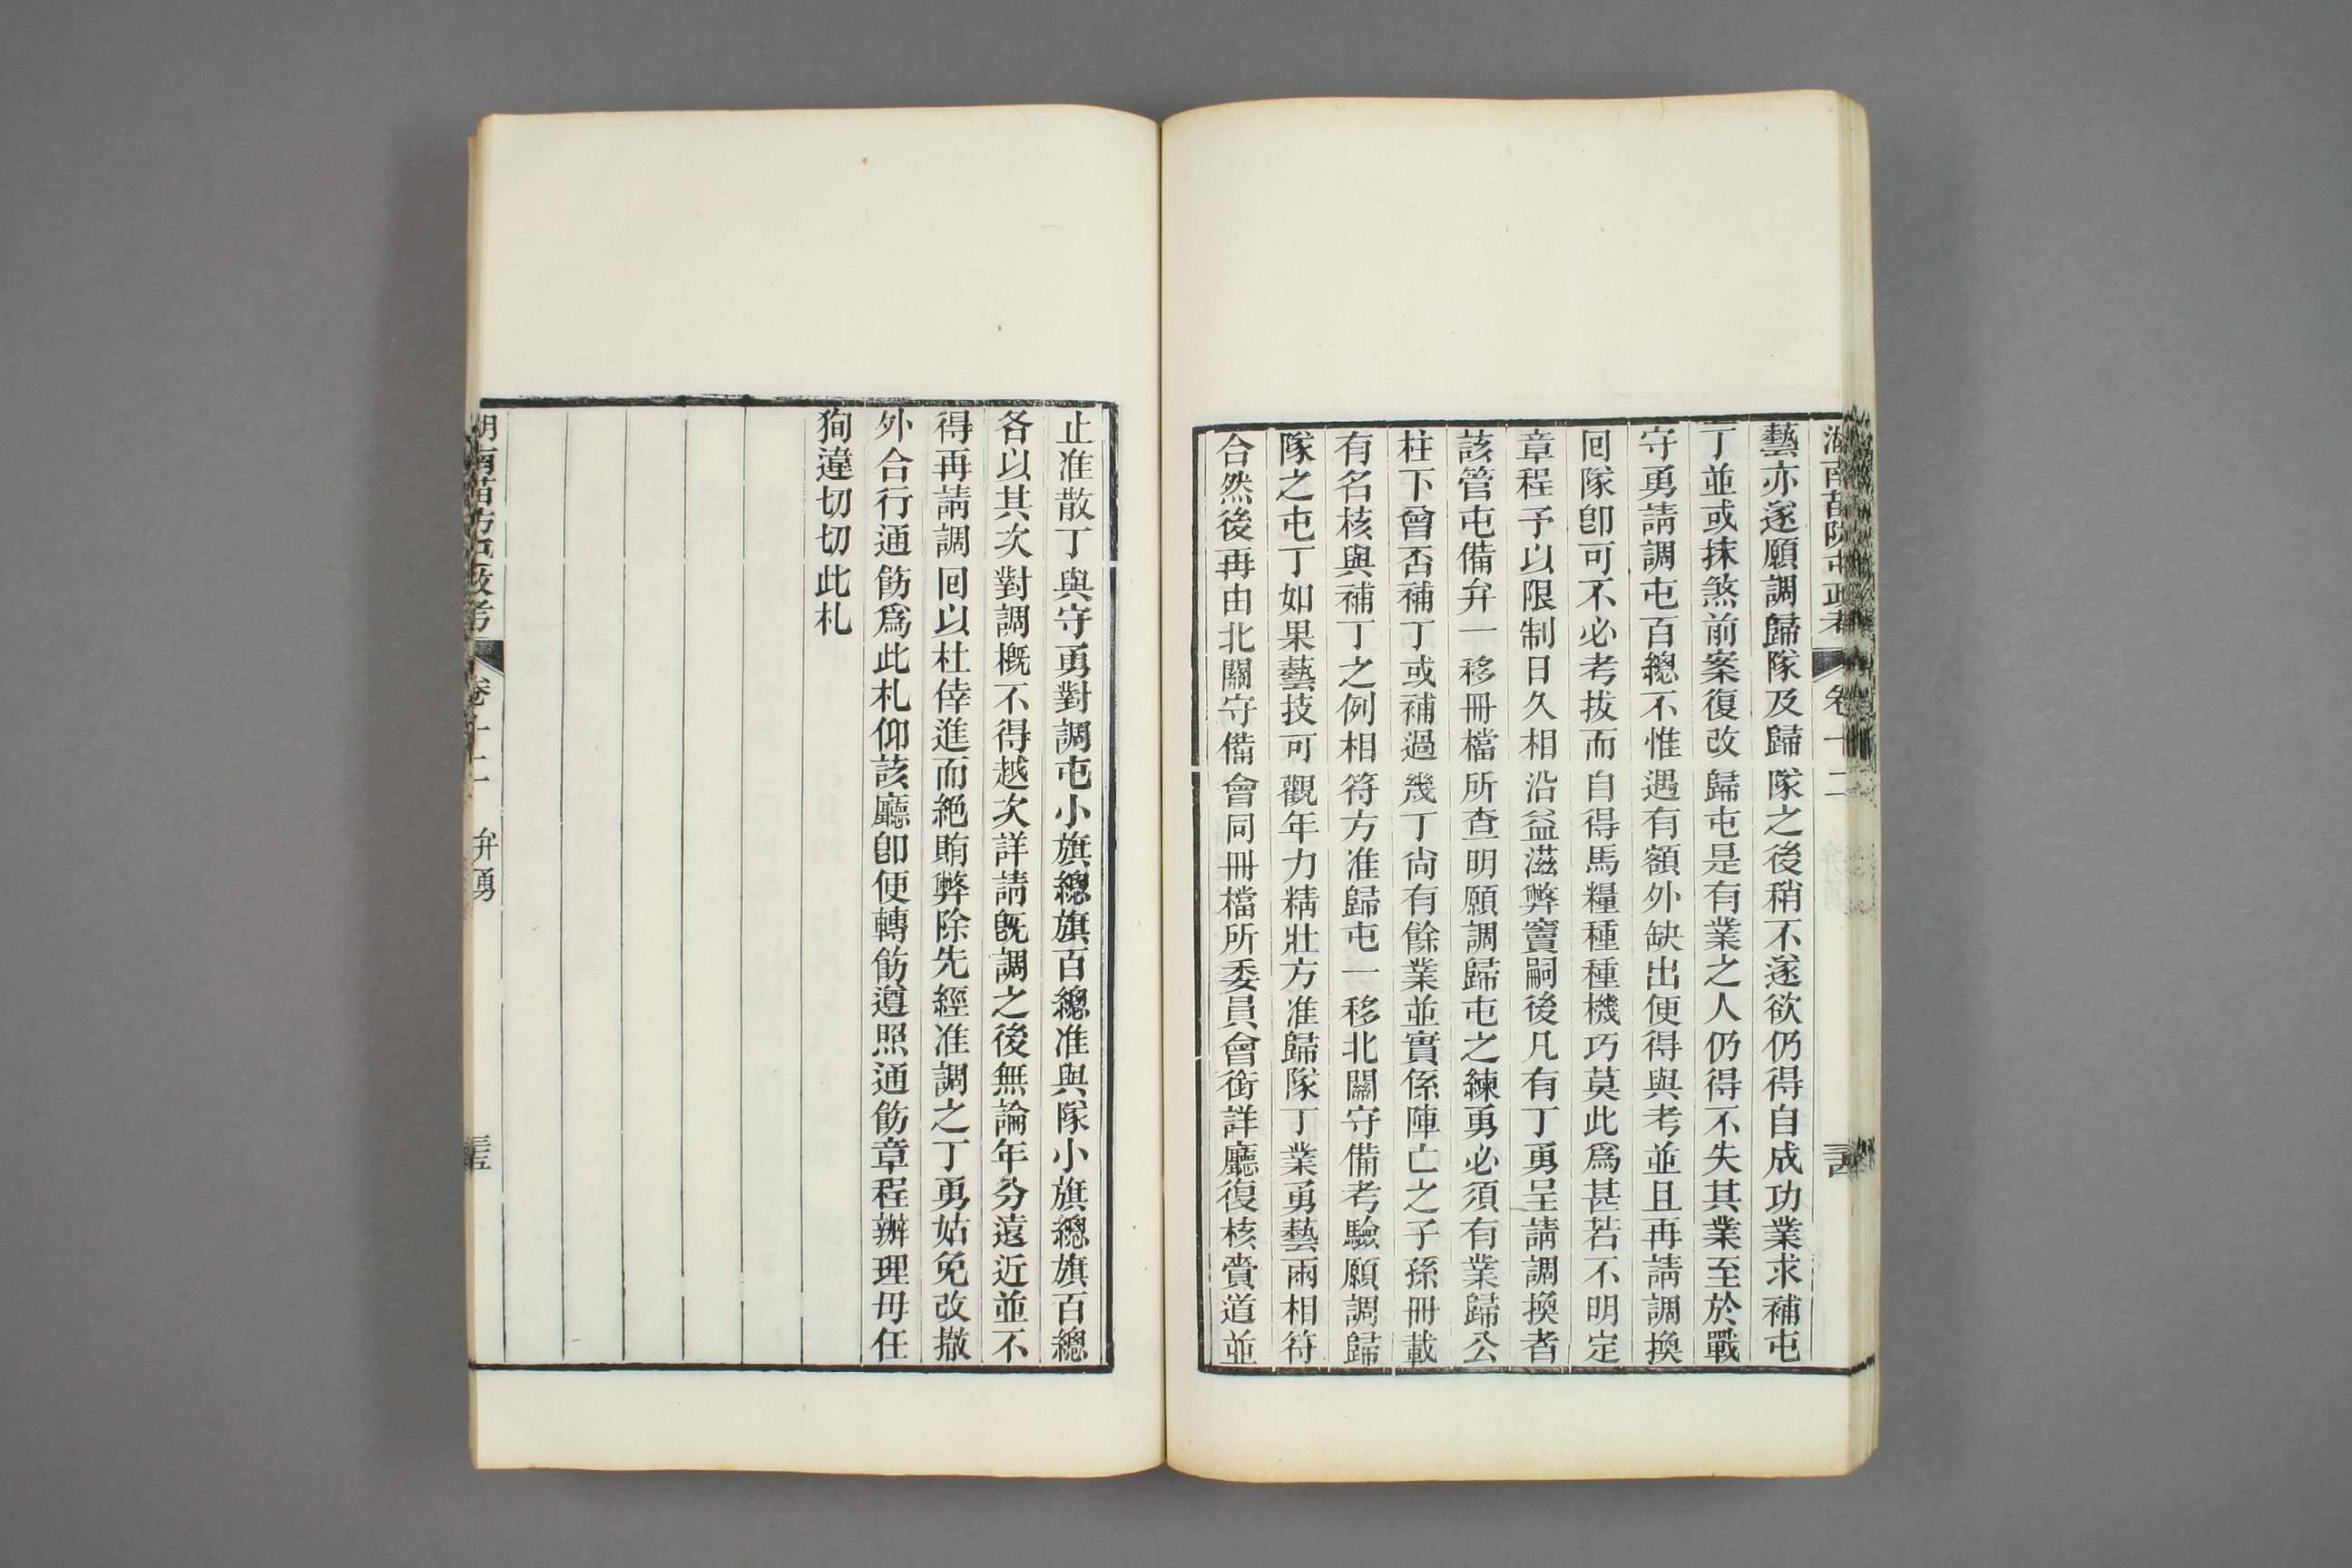 湖南苗防屯政考 卷十二
藝亦遂願調歸隊及歸隊之後稍不遂欲仍得自成功業求補屯
丁並或抹煞前案復改歸屯是有業之人仍得不失其業至於戰
守勇請調屯百總不惟遇有額外缺出便得與考並且再請調換
回隊卽可不必考拔而自得馬糧種種機巧莫此爲甚若不明定
章程予以限制日久相沿益滋弊竇嗣後凡有丁勇呈請調換者
該管屯備弁一移冊檔所查明願調歸屯之練勇必須有業歸公
柱下曾否補丁或補過幾丁尙有餘業並實係陣亡之子孫冊載
有名核與補丁之例相符方准歸屯一移北關守備考驗願調歸
隊之屯丁如果藝技可觀年力精壯方准歸隊丁業勇藝兩相符
合然後再由北關守備會同冊檔所委員會銜詳廳復核賷道並
止准散丁與守勇對調屯小旗總旗百總准與隊小旗總旗百總
各以其次對調槪不得越次詳請旣調之後無論年分遠近並不
得再請調回以杜倖進而絕賄弊除先經准調之丁勇姑免改撤
外合行通飭爲此札仰該廳卽便轉飭遵照通飭章程辦理毋任
狥違切切此札
湖南苗防屯政考 卷十二 弁勇